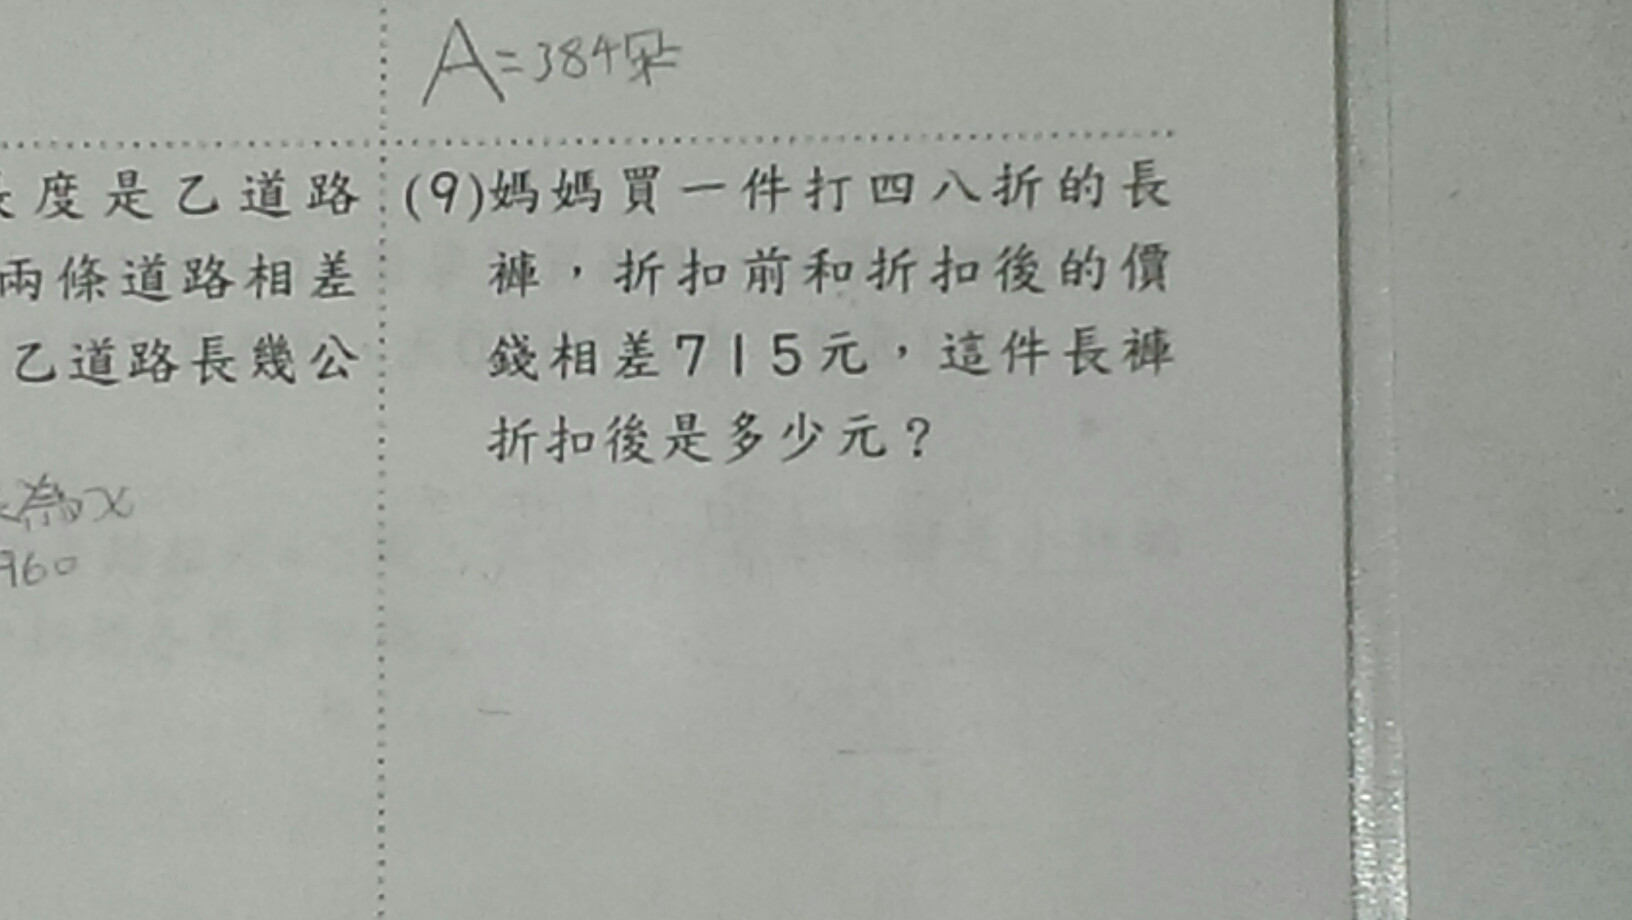 A=384朵
度是乙道路
兩條道路相差
乙道路長幾公
為x
960
(9)媽媽買一件打四八折的長
褲，折扣前和折扣後的價
錢相差715元，這件長褲
折扣後是多少元？